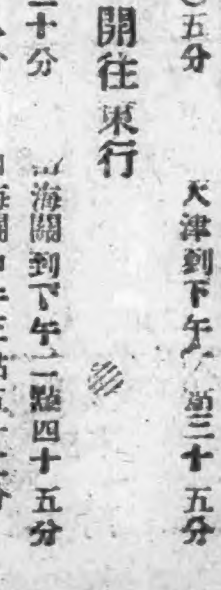 五分 天津到下午 點三十五分
開往東行
二十分 山海關到下午二點四十五分